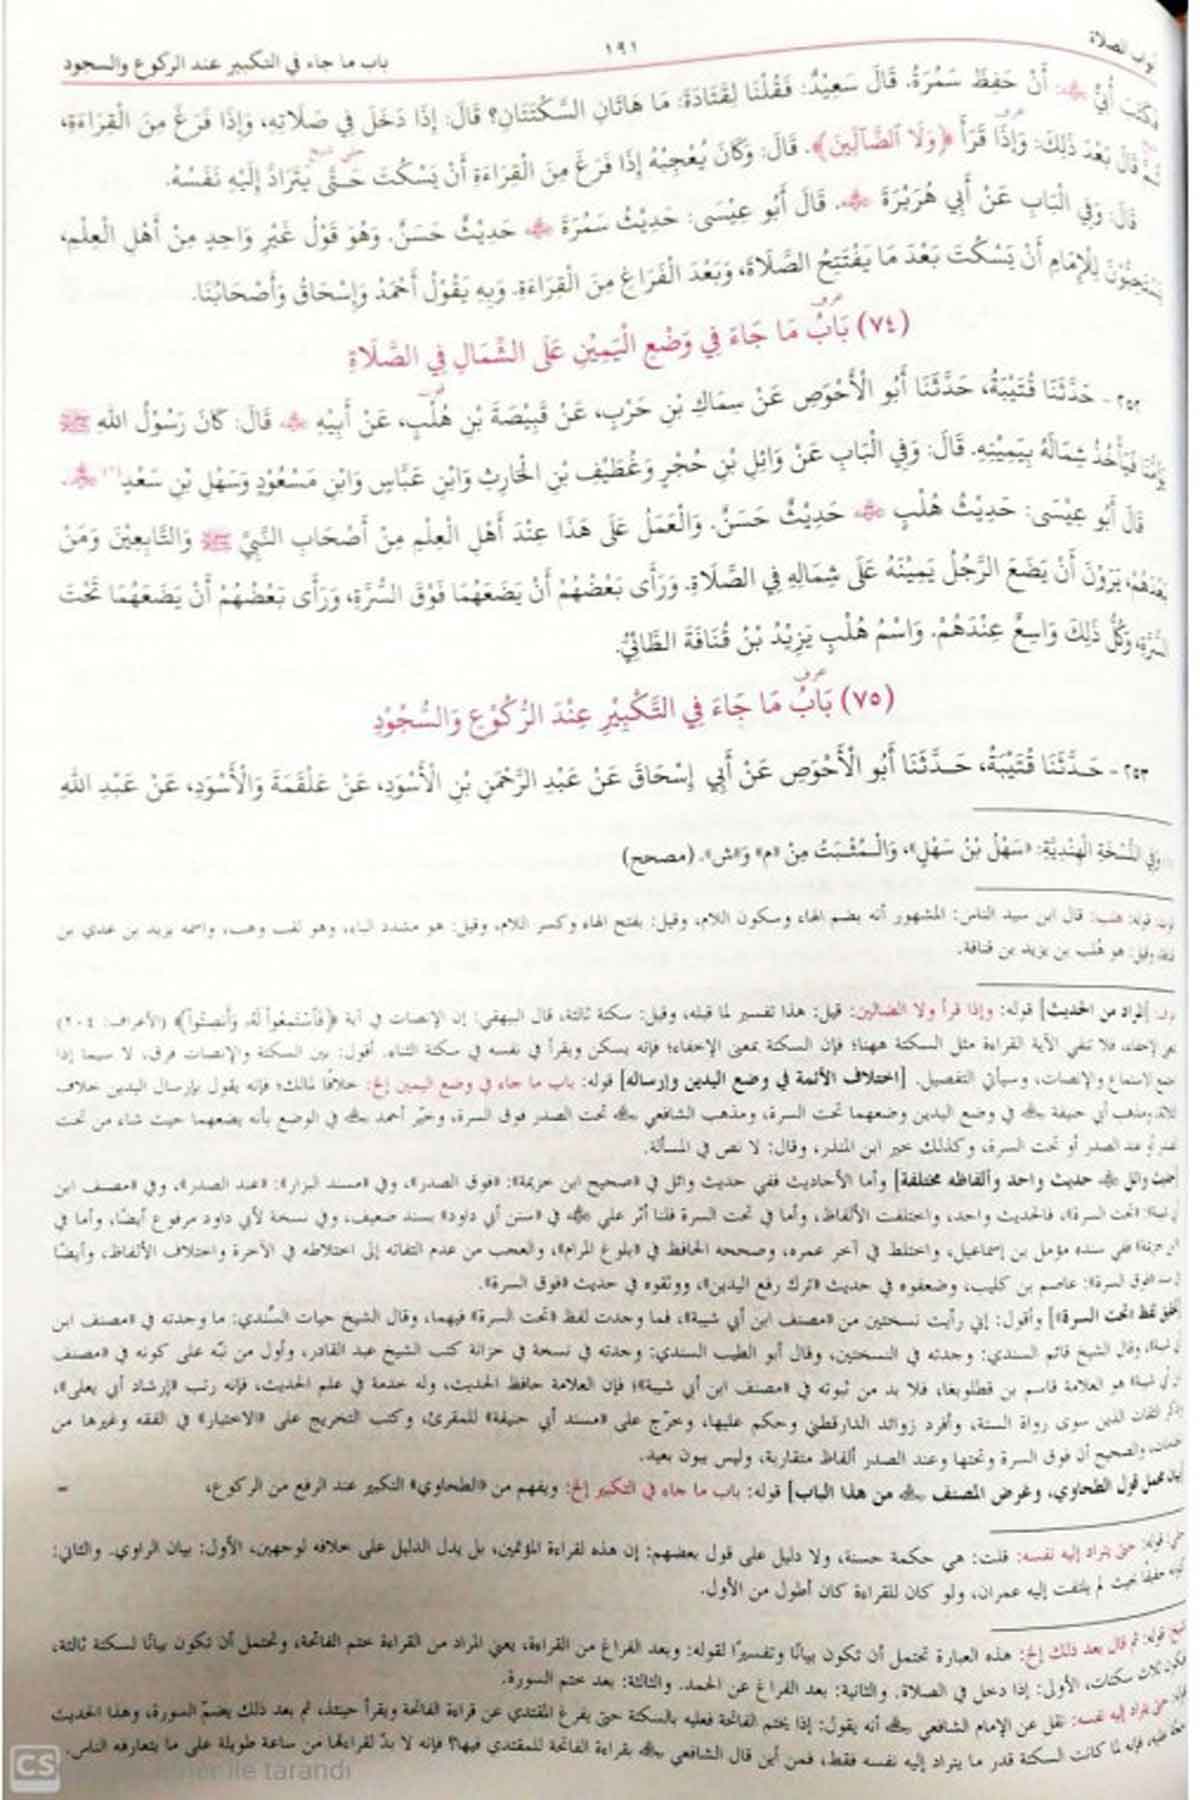 أبواب الصلاة ١٩١ باب ما جاء في التكبير عند الركوع والسجود
فَكَتَبَ أُبَيٌّ ﷺ: أَنْ حَفِظَ سَمُرَةُ. قَالَ سَعِيْدٌ: فَقُلْنَا لِقَتَادَةَ: مَا هَاتَانِ السَّكْتَتَانِ؟ قَالَ: إِذَا دَخَلَ فِي صَلَاتِهِ، وَإِذَا فَرَغَ مِنَ الْقِرَاءَةِ،
ثُمَّ قَالَ بَعْدَ ذَلِكَ: وَإِذَا قَرَأَ ﴿وَلَا ٱلضَّآلِّينَ﴾. قَالَ: وَكَانَ يُعْجِبُهُ إِذَا فَرَغَ مِنَ الْقِرَاءَةِ أَنْ يَسْكُتَ حَتَّى يَتَرَادَّ إِلَيْهِ نَفَسُهُ.
قَالَ: وَفِي الْبَابِ عَنْ أَبِي هُرَيْرَةَ. قَالَ أَبُو عِيْسَى: حَدِيْثُ سَمُرَةَ حَدِيْثٌ حَسَنٌ. وَهُوَ قَوْلُ غَيْرِ وَاحِدٍ مِنْ أَهْلِ الْعِلْمِ،
يَسْتَحِبُّوْنَ لِلْإِمَامِ أَنْ يَسْكُتَ بَعْدَ مَا يَفْتَتِحُ الصَّلَاةَ، وَبَعْدَ الْفَرَاغِ مِنَ الْقِرَاءَةِ. وَبِهِ يَقُوْلُ أَحْمَدُ وَإِسْحَاقُ وَأَصْحَابُنَا.
(٧٤) بَابُ مَا جَاءَ فِي وَضْعِ الْيَمِيْنِ عَلَى الشِّمَالِ فِي الصَّلَاةِ
٢٥٢ - حَدَّثَنَا قُتَيْبَةُ، حَدَّثَنَا أَبُو الْأَحْوَصِ عَنْ سِمَاكِ بْنِ حَرْبٍ، عَنْ قَبِيْصَةَ بْنِ هُلْبٍ، عَنْ أَبِيْهِ قَالَ: كَانَ رَسُوْلُ اللهِ ﷺ
يَؤُمُّنَا فَيَأْخُذُ شِمَالَهُ بِيَمِيْنِهِ. قَالَ: وَفِي الْبَابِ عَنْ وَائِلِ بْنِ حُجْرٍ وَغُطَيْفِ بْنِ الْحَارِثِ وَابْنِ عَبَّاسٍ وَابْنِ مَسْعُوْدٍ وَسَهْلِ بْنِ سَعْدٍ(١).
قَالَ أَبُو عِيْسَى: حَدِيْثُ هُلْبٍ حَدِيْثٌ حَسَنٌ. وَالْعَمَلُ عَلَى هَذَا عِنْدَ أَهْلِ الْعِلْمِ مِنْ أَصْحَابِ النَّبِيِّ ﷺ وَالتَّابِعِيْنَ وَمَنْ
بَعْدَهُمْ، يَرَوْنَ أَنْ يَضَعَ الرَّجُلُ يَمِيْنَهُ عَلَى شِمَالِهِ فِي الصَّلَاةِ. وَرَأَى بَعْضُهُمْ أَنْ يَضَعَهُمَا فَوْقَ السُّرَّةِ، وَرَأَى بَعْضُهُمْ أَنْ يَضَعَهُمَا تَحْتَ
السُّرَّةِ، وَكُلُّ ذَلِكَ وَاسِعٌ عِنْدَهُمْ. وَاسْمُ هُلْبٍ يَزِيْدُ بْنُ قُنَافَةَ الطَّائِيُّ.
(٧٥) بَابُ مَا جَاءَ فِي التَّكْبِيْرِ عِنْدَ الرُّكُوْعِ وَالسُّجُوْدِ
٢٥٣ - حَدَّثَنَا قُتَيْبَةُ، حَدَّثَنَا أَبُو الْأَحْوَصِ عَنْ أَبِي إِسْحَاقَ عَنْ عَبْدِ الرَّحْمَنِ بْنِ الْأَسْوَدِ، عَنْ عَلْقَمَةَ وَالْأَسْوَدِ، عَنْ عَبْدِ اللهِ
وَفِي النُّسْخَةِ الْهِنْدِيَّةِ: «سَهْلُ بْنُ سَهْلٍ»، وَالْمُثْبَتُ مِنْ «م» وَ«ش». (مصحح)
قوله: هلب: قال ابن سيد الناس: المشهور أنه بضم الهاء وسكون اللام، وقيل: بفتح الهاء وكسر اللام، وقيل: هو مشدد الباء، وهو لقب وهب، واسمه يزيد بن عدي بن
قنافة، وقيل: هو هُلب بن يزيد بن قنافة.
[المراد من الحديث] قوله: وإذا قرأ ولا الضالين: قيل: هذا تفسير لما قبله، وقيل: سكتة ثالثة، قال البيهقي: إن الإنصات في آية ﴿فَٱسْتَمِعُوا۟ لَهُۥ وَأَنصِتُوا۟﴾ (الأعراف: ٢٠٤)
الإخفاء، فلا تنفي الآية القراءة مثل السكتة ههنا؛ فإن السكتة بمعنى الإخفاء؛ فإنه يسكن ويقرأ في نفسه في سكتة الثناء. أقول: بين السكتة والإنصات فرق، لا سيما إذا
الاستماع والإنصات، وسيأتي التفصيل. [اختلاف الأئمة في وضع اليدين وإرساله] قوله: باب ما جاء في وضع اليمين إلخ: خلافًا لمالك؛ فإنه يقول بإرسال اليدين خلاف
الثلاثة، ومذهب أبي حنيفة في وضع اليدين وضعهما تحت السرة، ومذهب الشافعي تحت الصدر فوق السرة، وخيّر أحمد في الوضع بأنه يضعهما حيث شاء من تحت
الصدر أو عند الصدر أو تحت السرة، وكذلك خير ابن المنذر، وقال: لا نص في المسألة.
[حديث وائل حديث واحد وألفاظه مختلفة] وأما الأحاديث ففي حديث وائل في «صحيح ابن خزيمة»: «فوق الصدر»، وفي «مسند البزار»: «عند الصدر»، وفي «مصنف ابن
أبي شيبة»: «تحت السرة»، فالحديث واحد، واختلفت الألفاظ، وأما في تحت السرة فلنا أثر علي في «سنن أبي داود» بسند ضعيف، وفي نسخة لأبي داود مرفوع أيضًا، وأما في
ابن خزيمة» ففي سنده مؤمل بن إسماعيل، واختلط في آخر عمره، وصححه الحافظ في «بلوغ المرام»، والعجب من عدم التفاته إلى اختلاطه في الآخرة واختلاف الألفاظ، وأيضًا
«فوق السرة»: عاصم بن كليب، وضعفوه في حديث «ترك رفع اليدين»، ووثقوه في حديث «فوق السرة».
[تحقيق لفظ «تحت السرة»] وأقول: إني رأيت نسختين من «مصنف ابن أبي شيبة»، فما وجدت لفظ «تحت السرة» فيهما، وقال الشيخ حيات السِّندي: ما وجدته في «مصنف ابن
أبي شيبة»، وقال الشيخ قائم السندي: وجدته في النسختين، وقال أبو الطيب السندي: وجدته في نسخة في خزانة كتب الشيخ عبد القادر، وأول من نبّه على كونه في «مصنف
ابن أبي شيبة» هو العلامة قاسم بن قطلوبغا، فلا بد من ثبوته في «مصنف ابن أبي شيبة»؛ فإن العلامة حافظ الحديث، وله خدمة في علم الحديث، فإنه رتب «إرشاد أبي يعلى»،
الثقات الذين سوى رواة الستة، وأفرد زوائد الدارقطني وحكم عليها، وخرّج على «مسند أبي حنيفة» للمقرئ، وكتب التخريج على «الاختيار» في الفقه وغيرها من
والصحيح أن فوق السرة وتحتها وعند الصدر ألفاظ متقاربة، وليس ببون بعيد.
محمل قول الطحاوي، وغرض المصنف من هذا الباب] قوله: باب ما جاء في التكبير إلخ: ويفهم من «الطحاوي» التكبير عند الرفع من الركوع، =
قوله: حتى يتراد إليه نفسه: قلت: هي حكمة حسنة، ولا دليل على قول بعضهم: إن هذه لقراءة المؤتمين، بل يدل الدليل على خلافه لوجهين، الأول: بيان الراوي. والثاني:
كونه خفيفًا بحيث لم يلتفت إليه عمران، ولو كان للقراءة كان أطول من الأول.
قوله: ثم قال بعد ذلك إلخ: هذه العبارة تحتمل أن تكون بيانًا وتفسيرًا لقوله: وبعد الفراغ من القراءة، يعني المراد من القراءة ختم الفاتحة، وتحتمل أن تكون بيانًا لسكتة ثالثة،
فتكون ثلاث سكتات، الأولى: إذا دخل في الصلاة. والثانية: بعد الفراغ عن الحمد. والثالثة: بعد ختم السورة.
حتى يتراد إليه نفسه: نقل عن الإمام الشافعي أنه يقول: إذا يختم الفاتحة فعليه بالسكتة حتى يفرغ المقتدي عن قراءة الفاتحة ويقرأ حينئذ، ثم بعد ذلك يضمّ السورة، وهذا الحديث
فإنه لما كانت السكتة قدر ما يتراد إليه نفسه فقط، فمن أين قال الشافعي بقراءة الفاتحة للمقتدي فيها؟ فإنه لا بدّ لقراءتها من ساعة طويلة على ما يتعارفه الناس.
CS ile tarandı